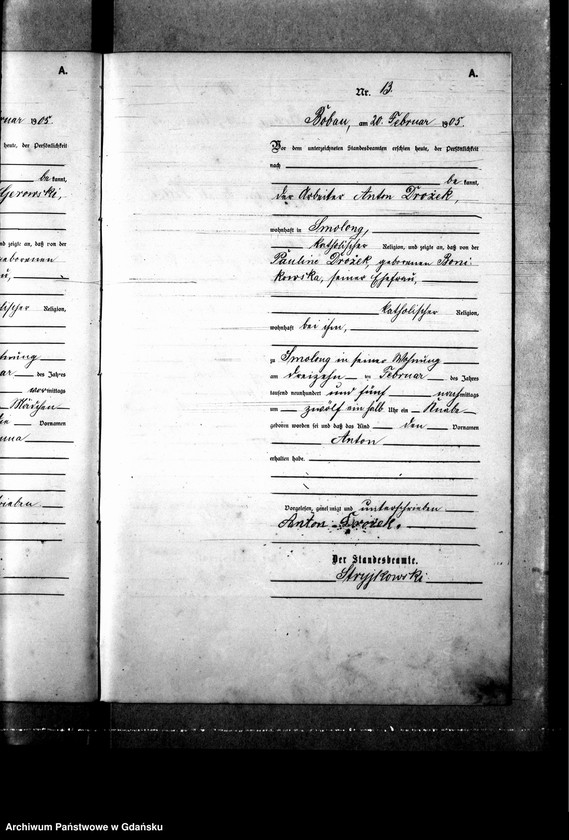 A.
ruar 1905
heute, der Persönlichkeit
be kannt,
Gerowski,
und zeigte an, daß von der
geborenen
lischer Religion,
ar des Jahres
vormittags
Mädchen
Vornamen
nna
rieben
A.
Nr. 13
Bobau, am 20. Februar 1905.
Vor dem unterzeichneten Standesbeamten erschien heute, der Persönlichkeit
nach
be kannt,
der Arbeiter Anton Drożek,
wohnhaft in Smolong,
katholischer Religion, und zeigte an, daß von der
Pauline Drożek, geborenen Boni
kowska, seiner Ehefrau,
katholischer Religion,
wohnhaft bei ihm,
zu Smolong in seiner Wohnung
am dreizehn ten Februar des Jahres
tausend neunhundert und fünf nachmittags
um zwölf ein halb Uhr ein Knabe
geboren worden sei und daß das Kind den Vornamen
Anton
erhalten habe.
Vorgelesen, genehmigt und unterschrieben
Anton Drożek.
Der Standesbeamte.
Stryjkowski
Archiwum Państwowe w Gdańsku